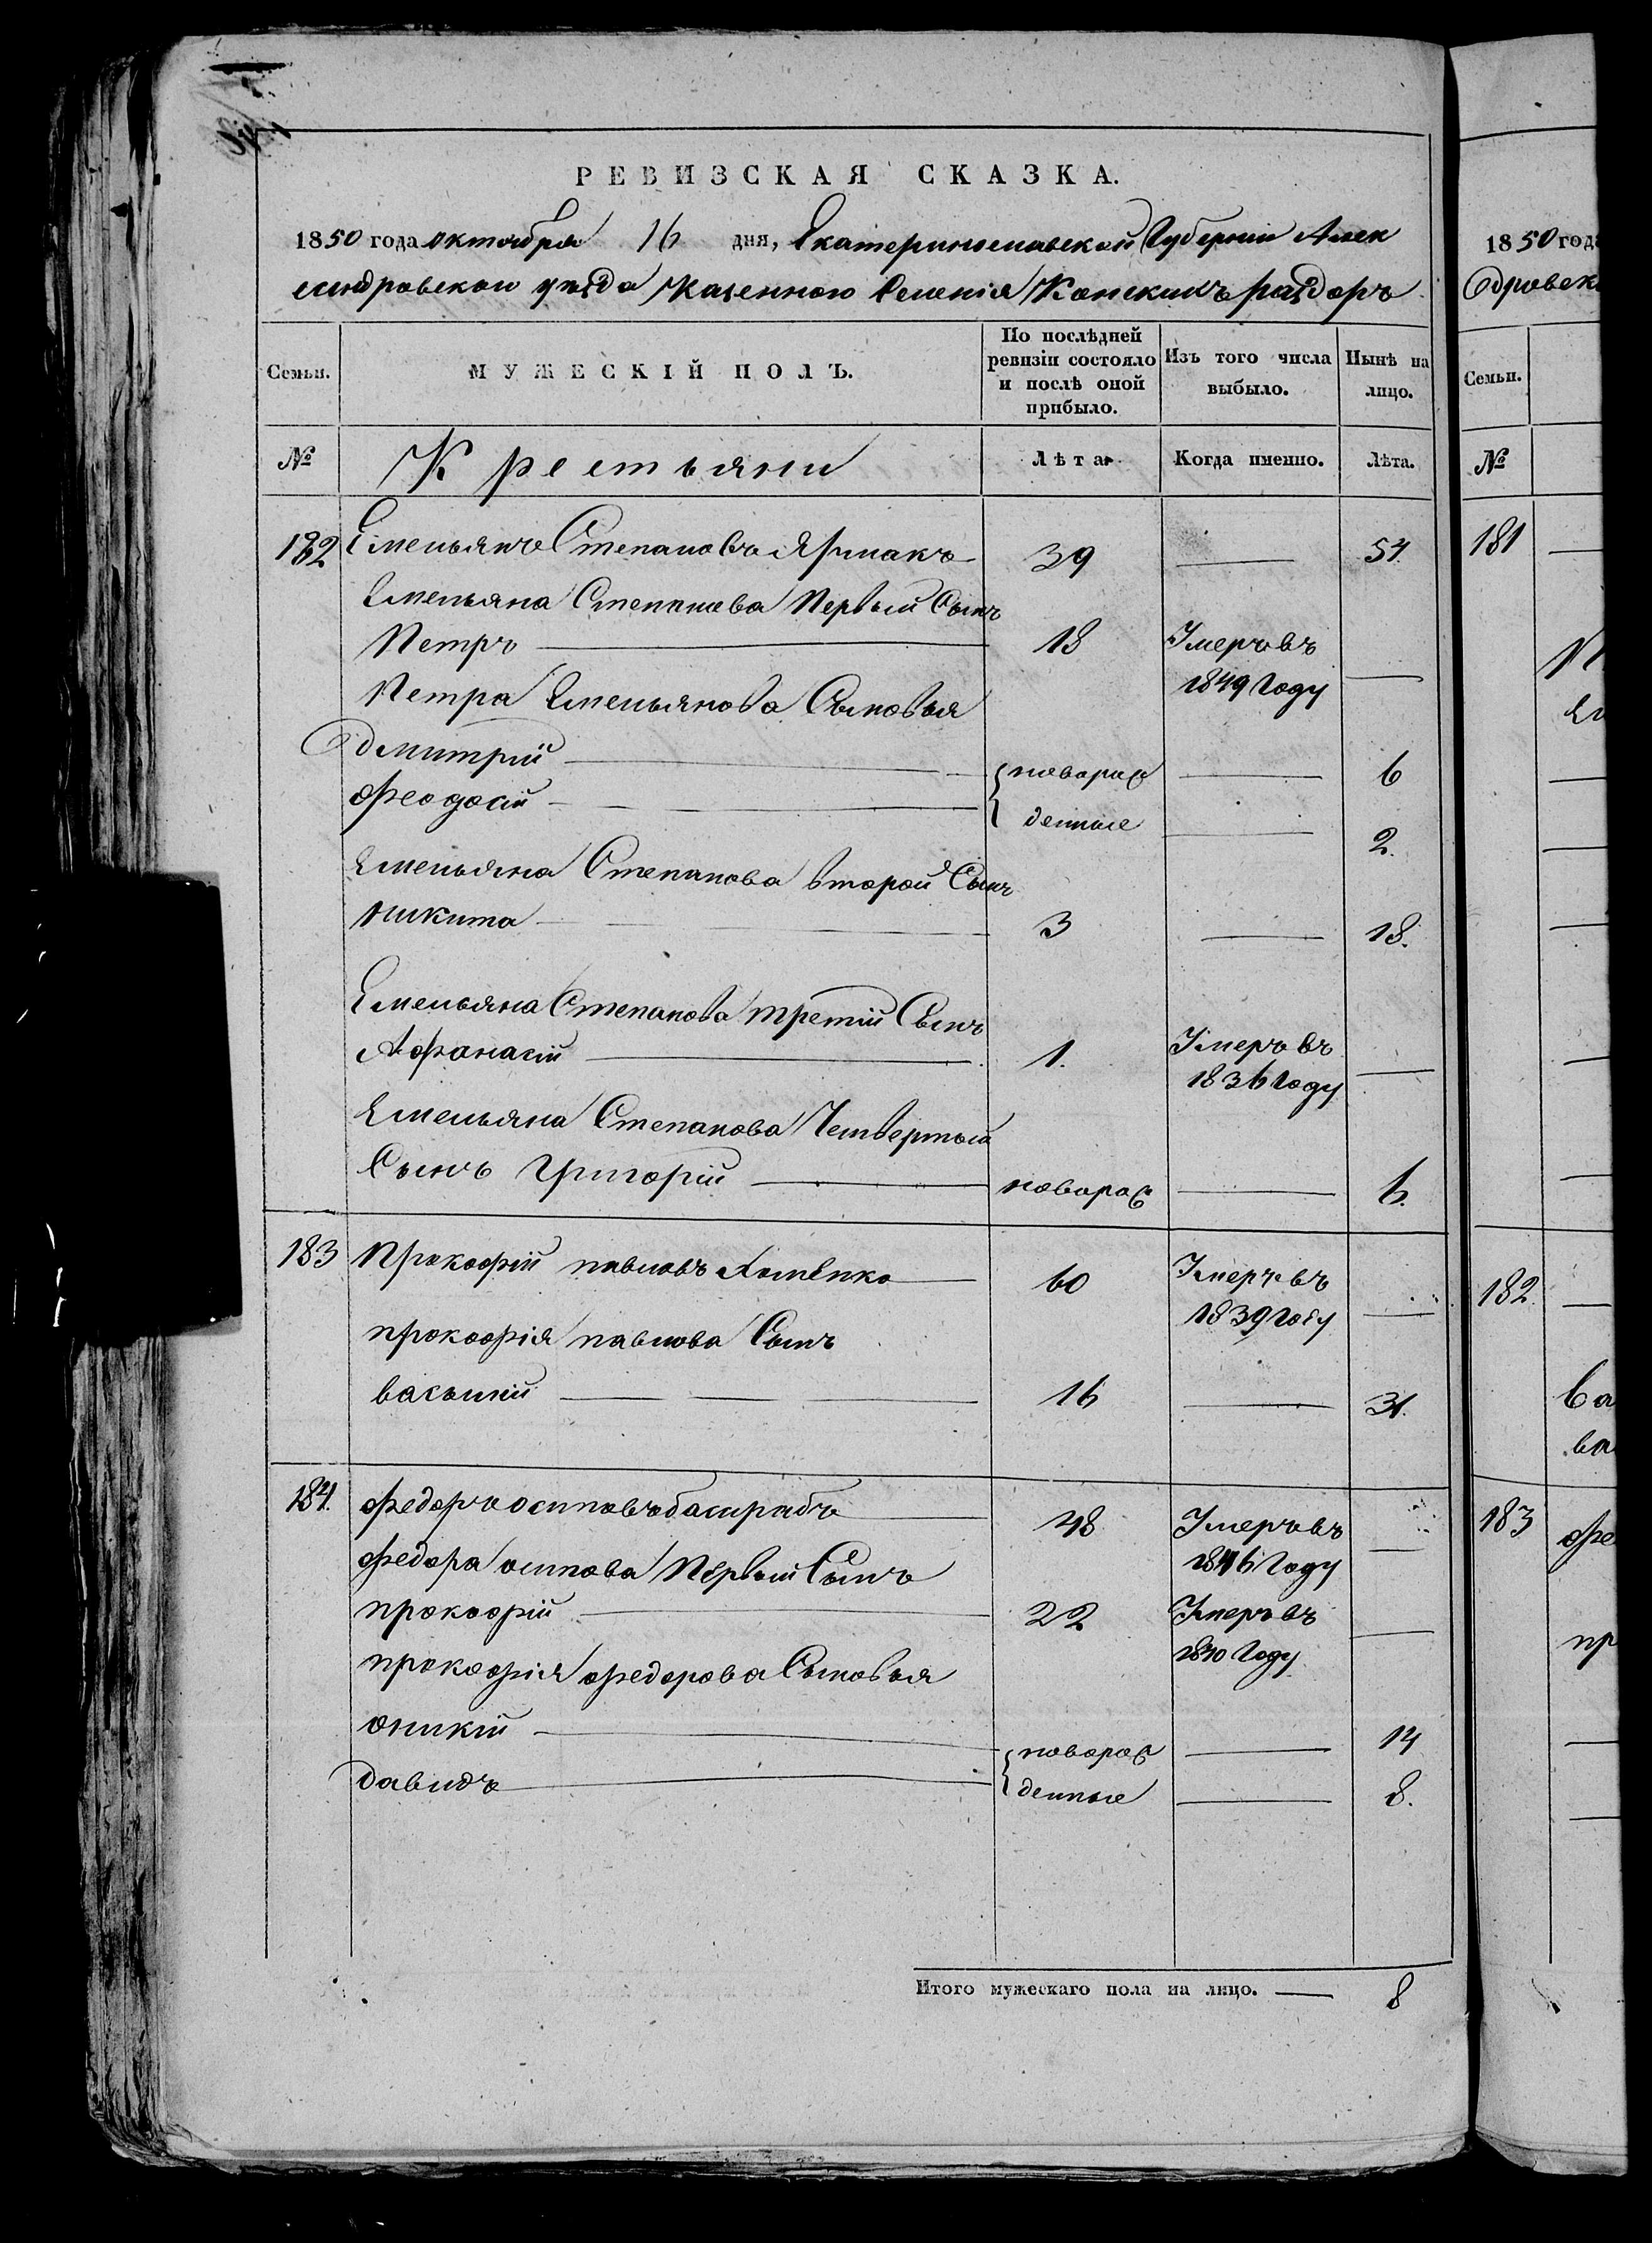 РЕВИЗСКАЯ СКАЗКА.
1850 года октября 16 дня, Екатеринославской Губернии Алек
сандровского уезда Казенного Селенія Конскихъ раздоръ
Семьи. МУЖЕСКІЙ ПОЛЪ. По послѣдней ревизіи состояло и послѣ оной прибыло. Изъ того числа выбыло. Нынѣ на лицо.
№ Крестьяни Лѣта. Когда именно. Лѣта.
182 Емельянъ Степановъ Ярмакъ 39 — 54.
Емельяна Степанова Первый Сынъ
Петръ 18 Умеръ въ 1849 Году —
Петра Емельянова Сыновья
Дмитрій новорож — 6
Феодосій денные — 2.
Емельяна Степанова второй Сынъ
Никита 3 — 18.
Емельяна Степанова третій Сынъ
Афанасій 1. Умеръ въ 1836 Году —
Емельяна Степанова Четвертый
Сынъ Григорій новорож — 6.
183 Прокофій павловъ Хоменко 60 Умеръ въ 1839 Году —
прокофія павлова Сынъ
василий 16 — 31.
184. федоръ осиповъ 48 Умеръ въ 1846 Году —
федора осипова Первый Сынъ
прокофій 22 Умеръ въ 1840 Году —
прокофія федорова Сыновья
оникій новорож — 14
давидъ денные — 8.
Итого мужескаго пола на лицо. — 8
1850 года
дровск
Семьи.
№
181
182
183